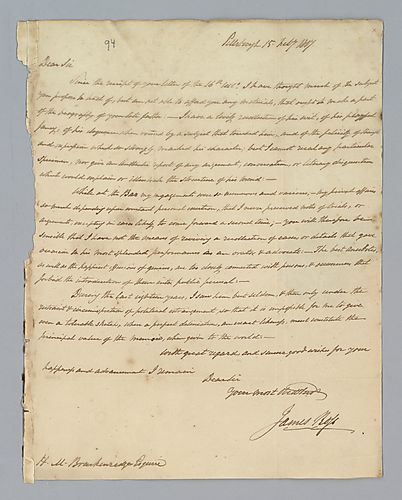 94
Pittsburgh 15 Feby 18
Dear Sir
Since the receipt of your letter of the 16th I have thought much of the subject
you propose to but am not able to afford you any materials, that ought to make a part
of the biography of your late father — I have a lively recollection of his wit, of his playful
fancy, of his eloquence when roused by a subject that touched him, and of the felicity of thought
and expression which so strongly marked his character, but I cannot recal any particular
specimen, nor give an authentic report of any argument, conversation, or literary disquisition
which would explain or illustrate the structure of his mind —
While at the Bar my engagements were so numerous and various, — my private affairs
so much depending upon constant personal exertion, that I never preserved notes of trials, or
arguments excepting in cases likely to come forward a second time, — you will therefore be
sensible that I have not the means of reviving a recollection of cases or details that gave
occasion to his most splendid performances as an orator & advocate. — The best anecdotes,
as well as the happiest of genius, are too closely connected with persons, & occurrences that
forbid the introduction of them into public perusal: —
During the last eighteen years, I saw him but seldom, & then only under the
restraint & circumspection of political estrangement, so that it is impossible for me to give
even a tolerable sketch, where a perfect delineation, an exact likeness, must constitute the
principal value of the memoir, when given to the world: —
With great regard and sincere good wishes for your
happiness and advancement I remain
Dear Sir
Your most
James Ross
H. M. Brackenridge Esquire